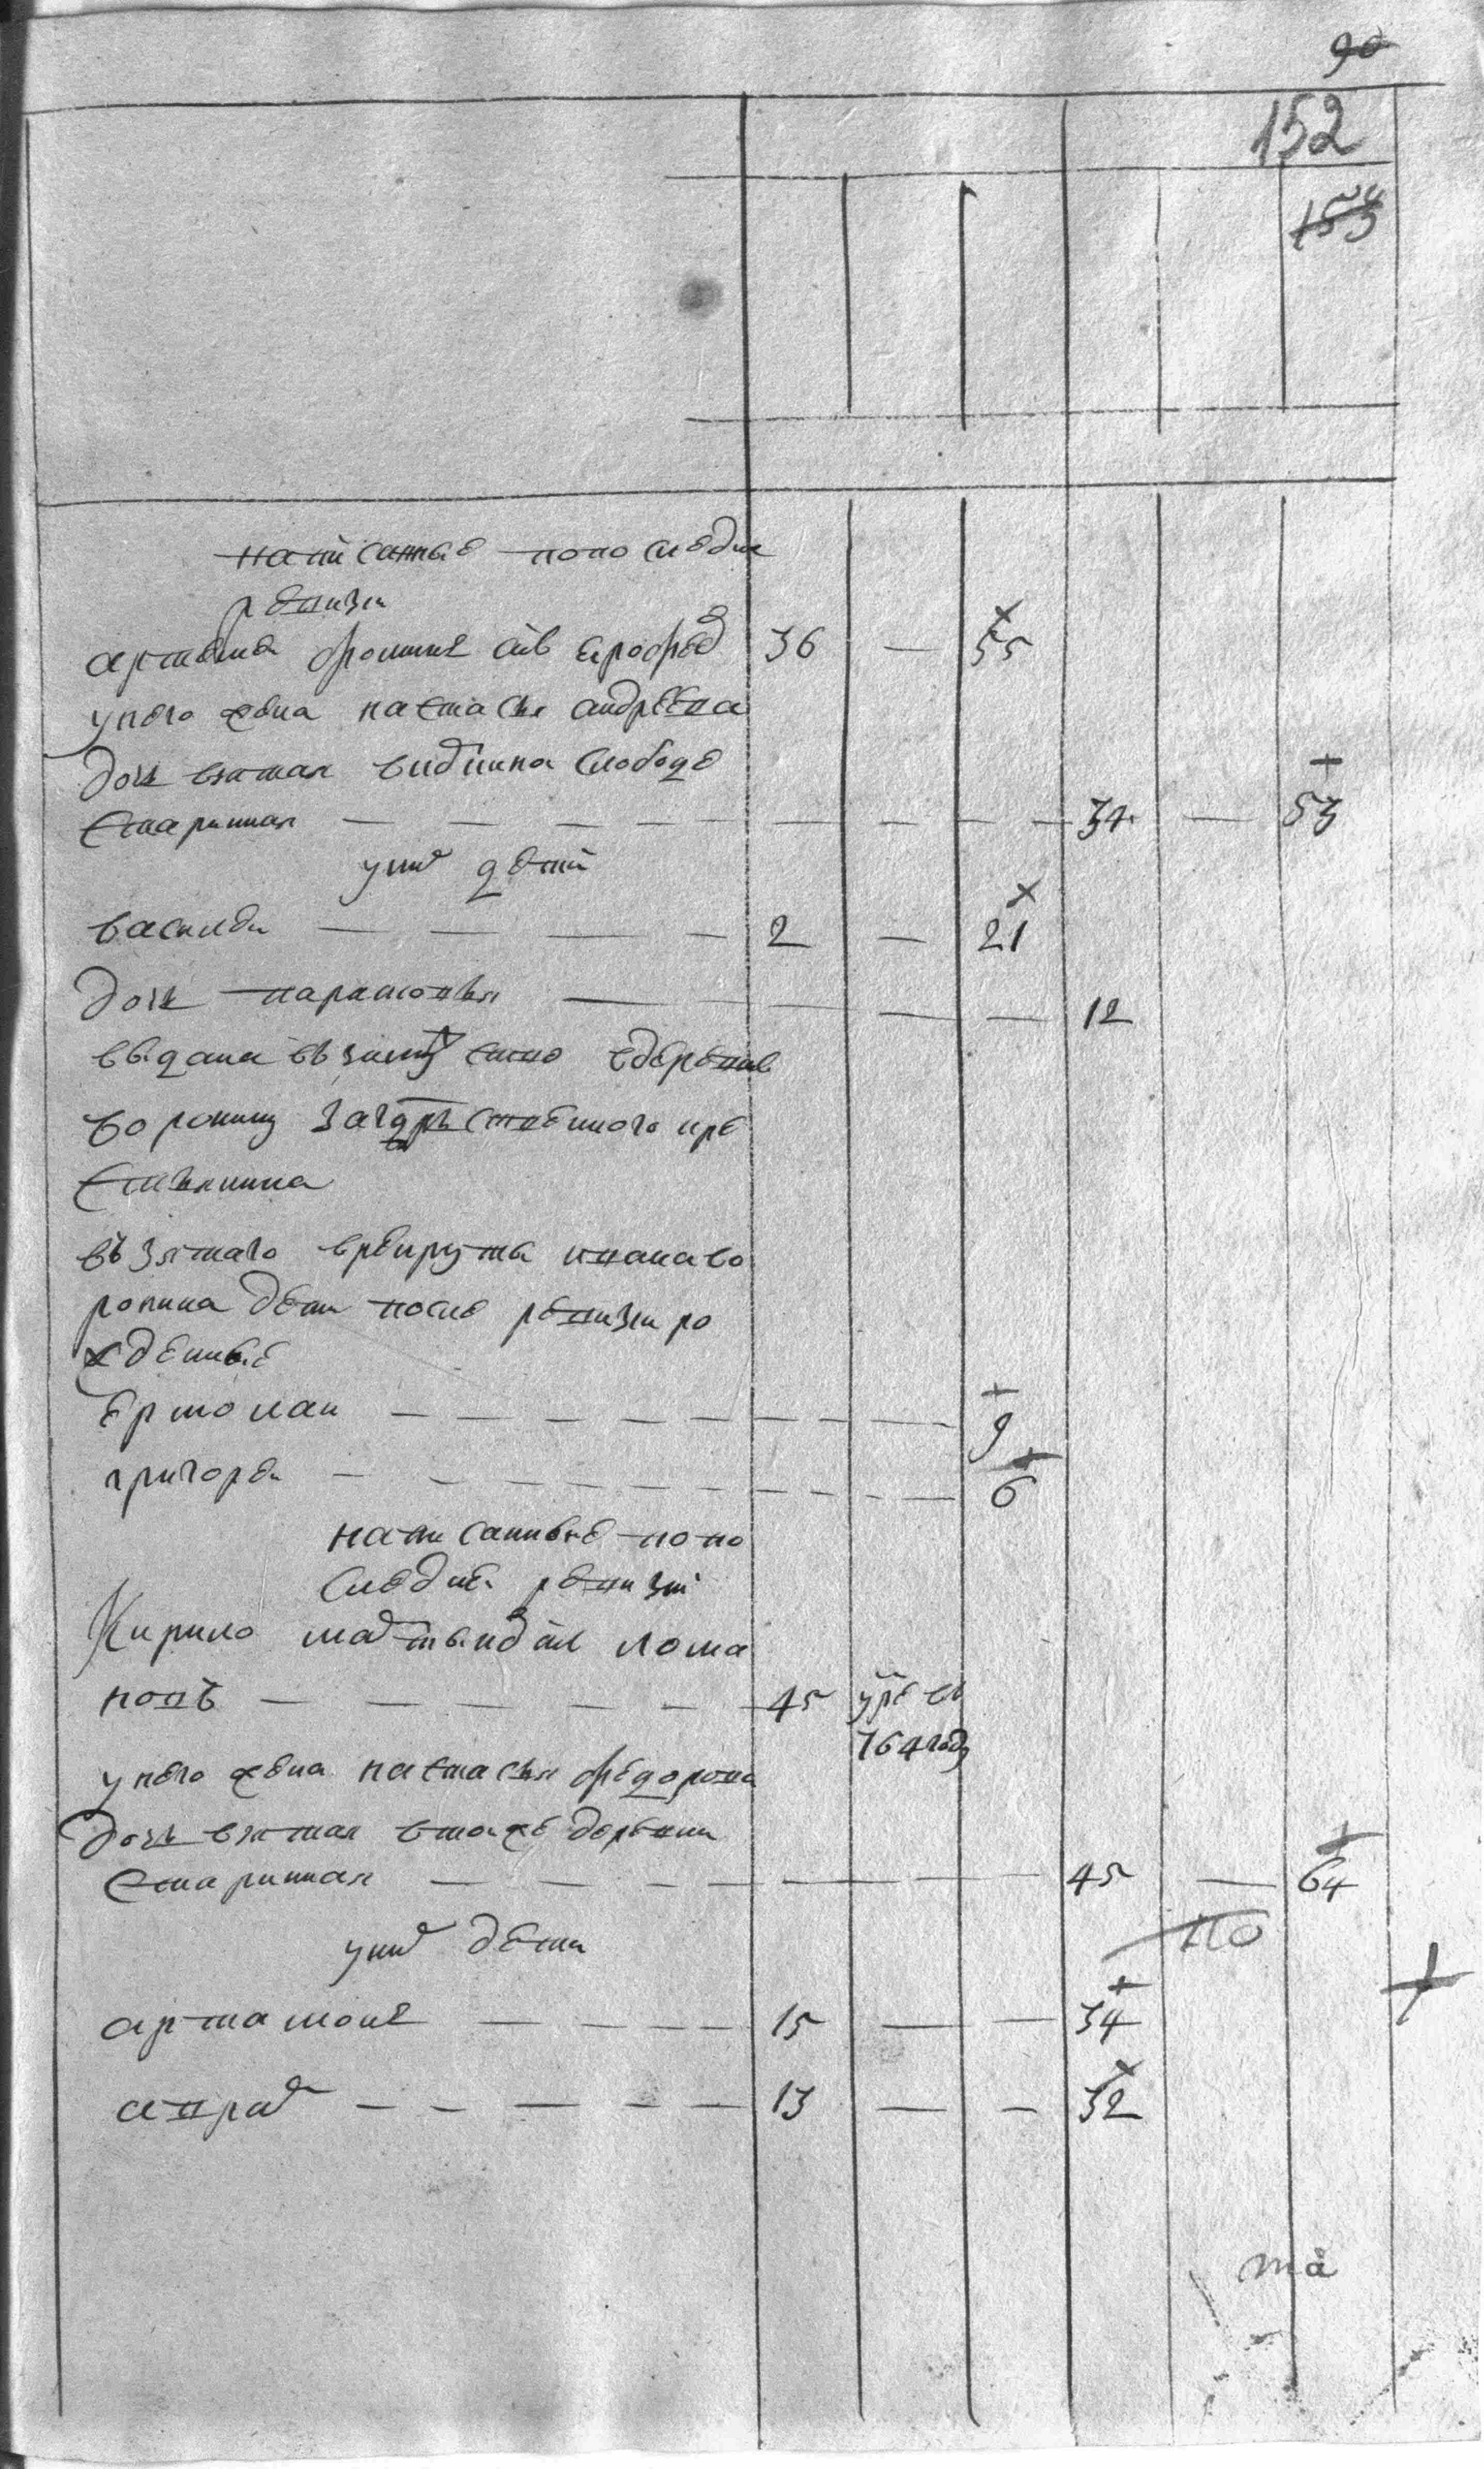 90
152
153
написаные попоследне
ревизи
артемеи фоминъ снъ ерофеев 36 — 55
унего жена настасья андреевна
дочь взятая видинка слободе
старинная — 34 — 53
у них дети
василеи — 2 — 21
дочь парасковья — 12
выдана
воронину загдрьственного кре
стьянина
възятаго врекруты ивана во
ронина дети после ревизи ро
жденные
ермолаи — 9
григореи — 6
написанные попо
следнеи ревизии
Кирило матвеивъ снъ лома
новъ — 45 умре въ
764 году
унего жена настасья федорова
дочь взятая втои же деревни
старинная — 45 — 64
по
у них дети
артамонъ — 15 — 34
— 13 — 32
та